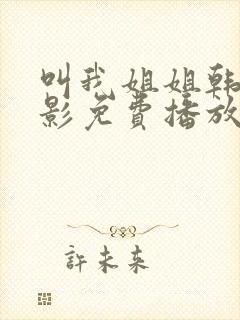 叫我姐姐韩
影免费播放
许未来